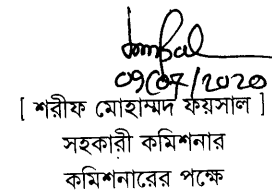 09/07/2020
[ শরীফ মোহাম্মদ ফয়সাল ]
সহকারী কমিশনার
কমিশনারের পক্ষে